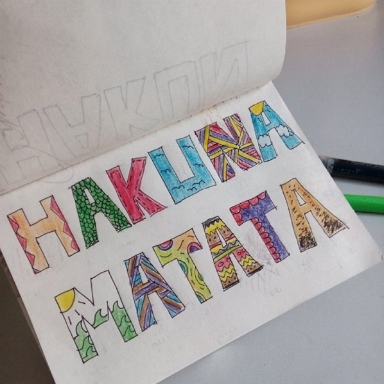 HAKUNA
MATATA